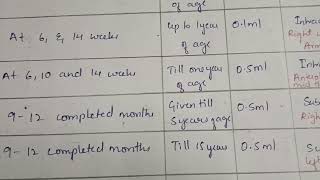 of age
At 6, & 14 weeks
up to 1 year
of age
0.1ml
Intrad
Right u
Arm
At 6, 10 and 14 weeks
Till one year
of age
0.5ml
Intra
Antero
mid th
9-12 completed months
Given till
5 years of age
0.5ml
Sub
Right
9-12 completed months
Till 15 years
0.5ml
Su
left